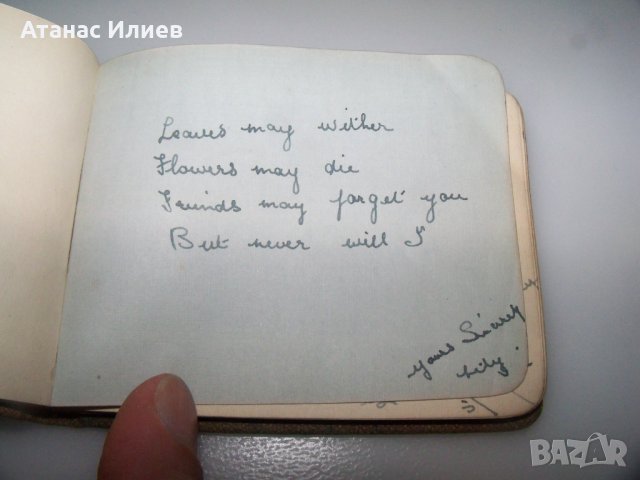 Атанас Илиев
Leaves may wither
Flowers may die
Friends may forget you
But never will I
Yours Sincerely
Lily.
BAZAR